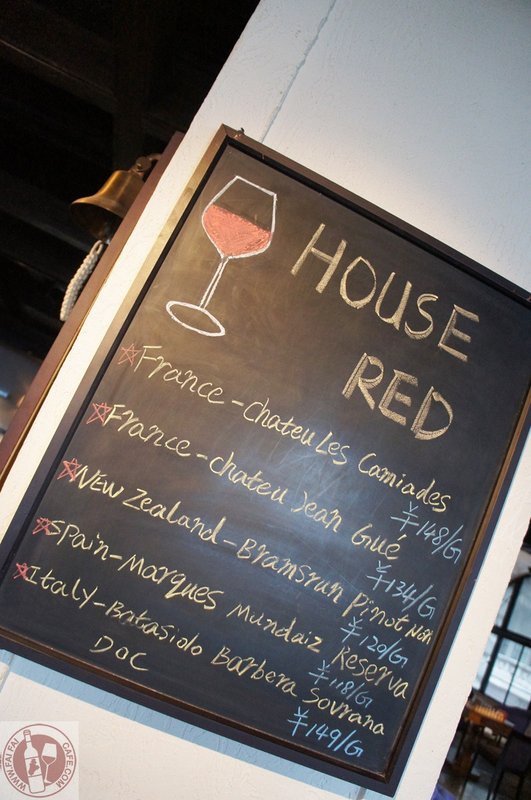 HOUSE
RED
France-Chateu Les Camiades
¥148/G
France-chateu Jean Gué
¥134/G
NEW Zealand-Bransrun Pinot Noir
¥120/G
Spain-Marques Mundaiz Reserva
¥118/G
Italy-Batasiolo Barbera Sovrana
DOC
¥149/G
WWW.FAI FAI CAFE.COM